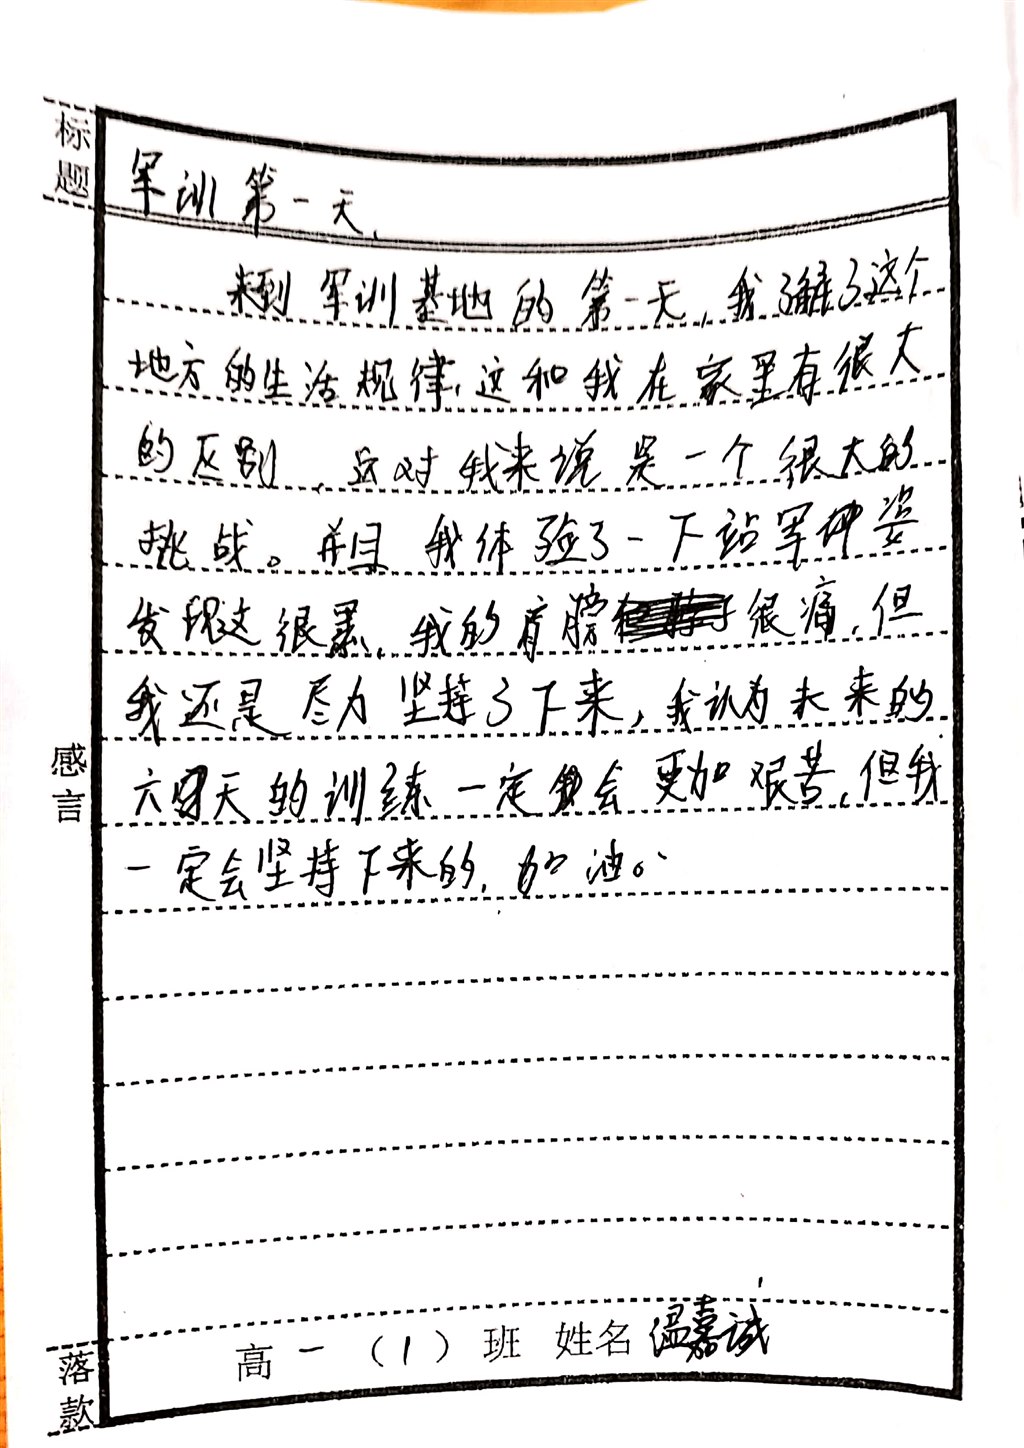 标题
军训第一天.
来到军训基地的第一天,我了解了这个
地方的生活规律,这和我在家里有很大
的区别,应对我来说是一个很大的
挑战。并且我体验了一下站军神姿
发现这很累,我的肩膀很痛,但
我还是尽力坚持了下来,我认为未来的
六天的训练一定会更加艰苦,但我
一定会坚持下来的,加油。
感言
落款
高一(1)班 姓名 温嘉诚